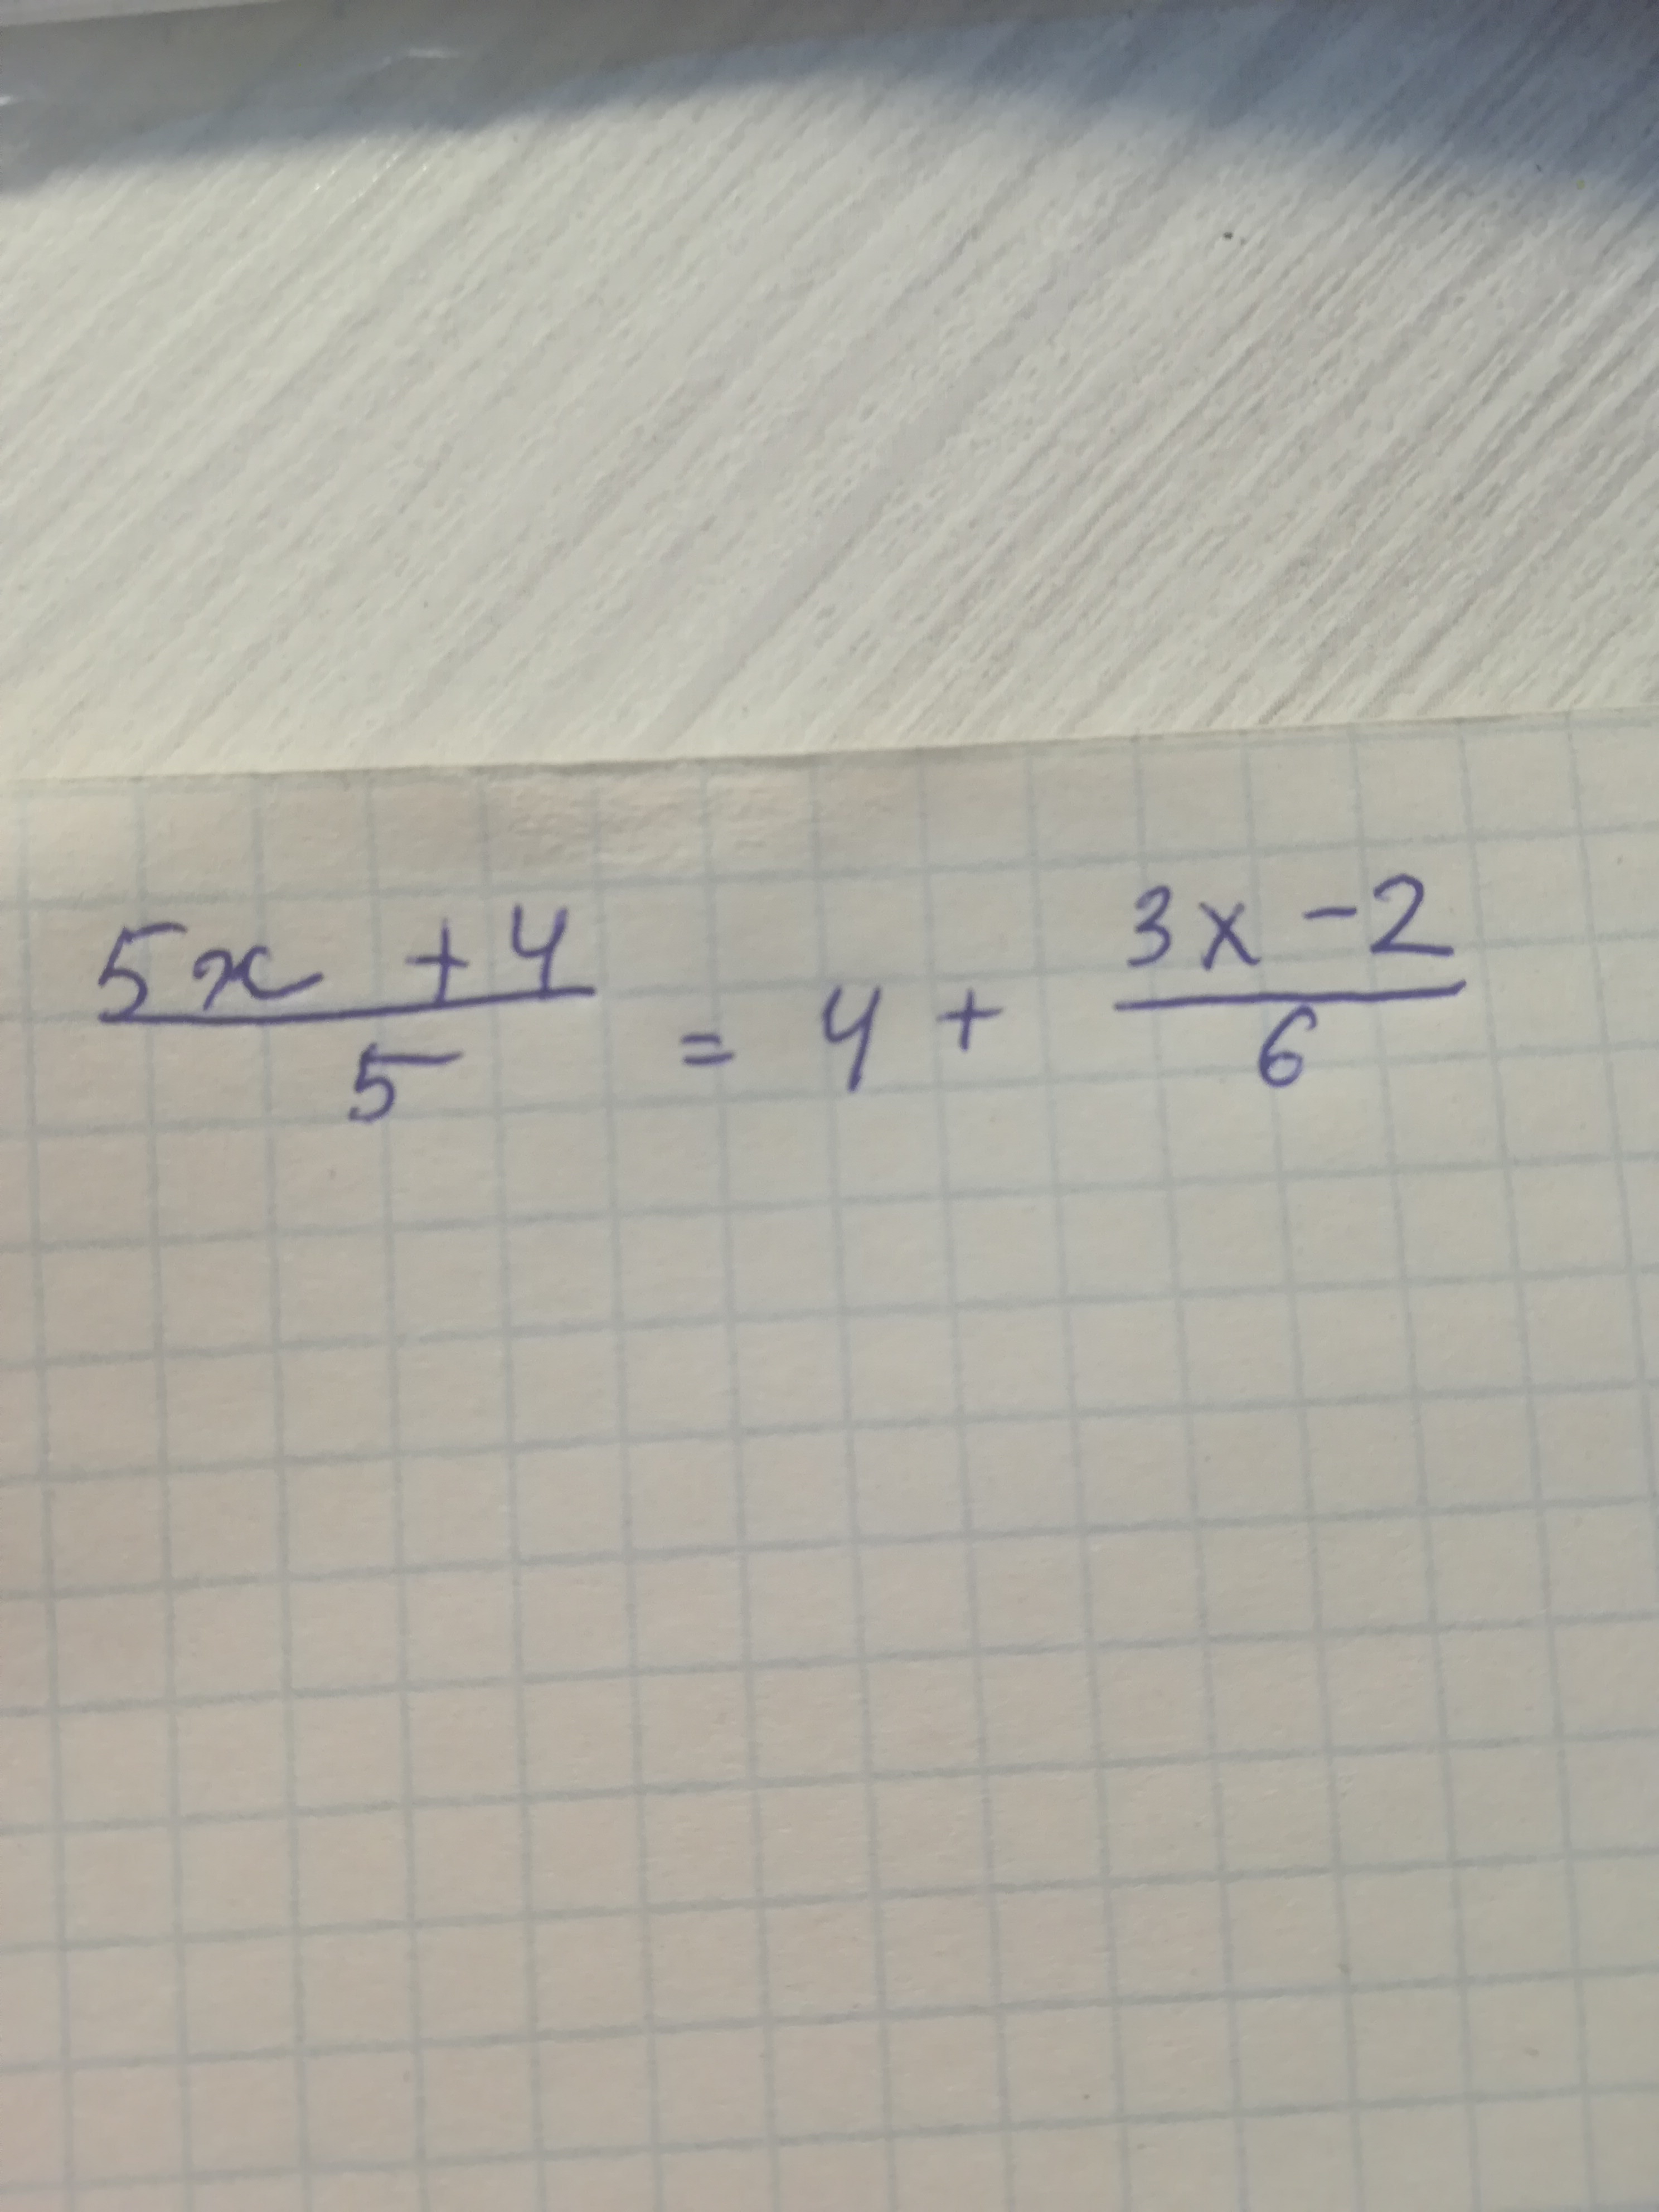 (5x + 4)/5 = 4 + (3x - 2)/6